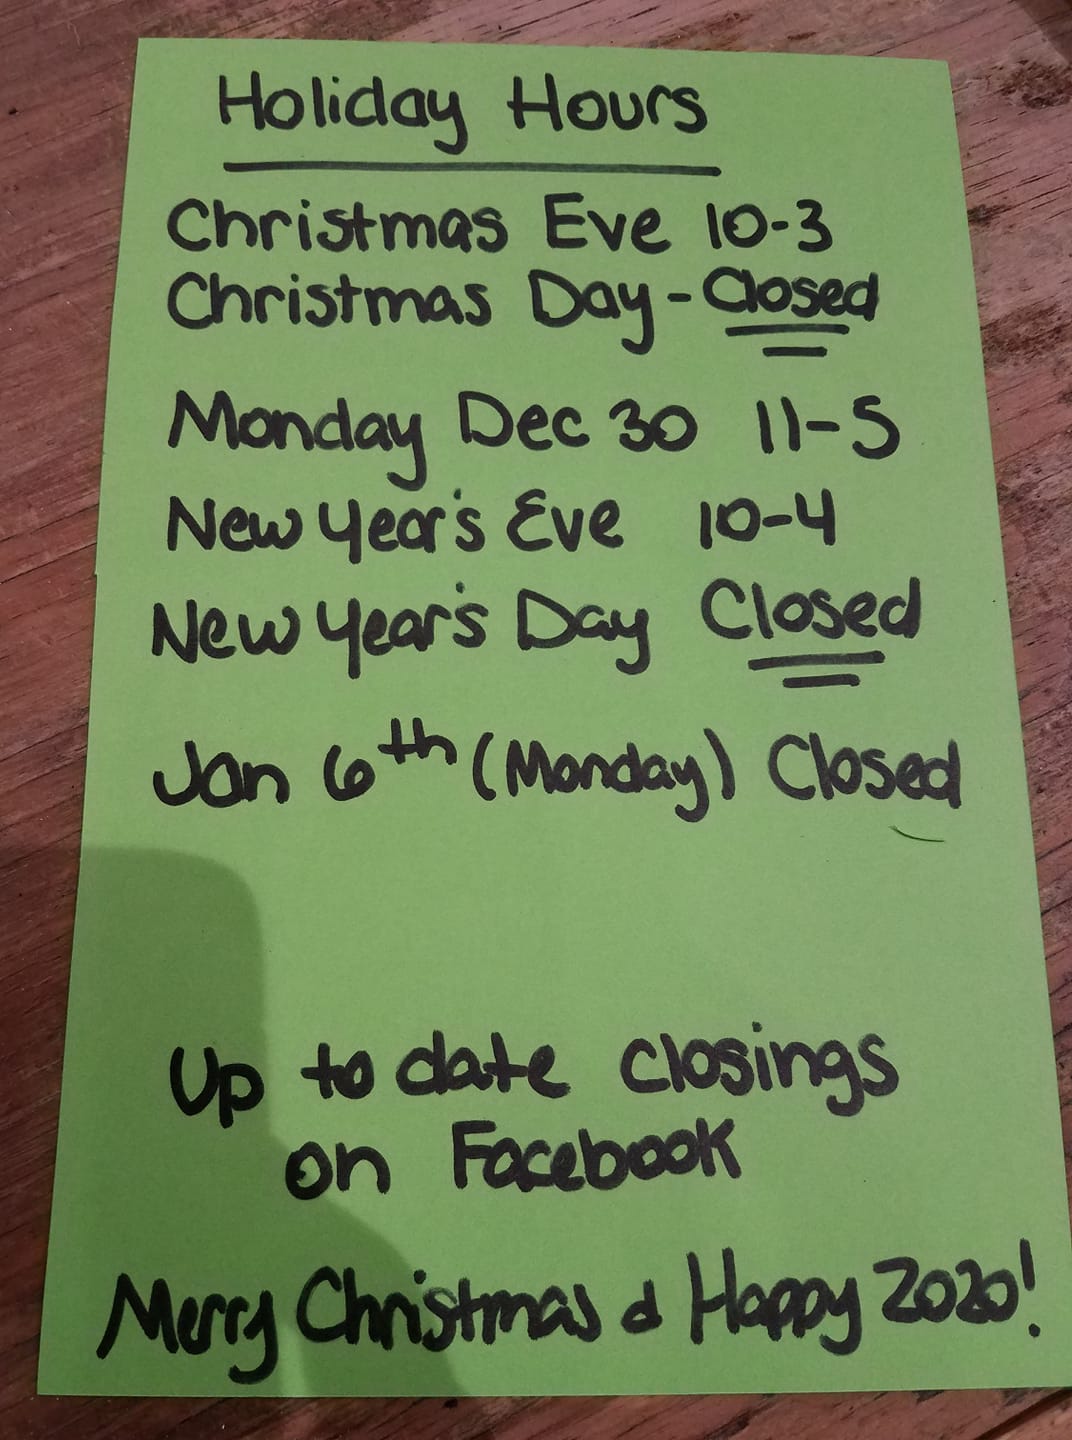 Holiday Hours
Christmas Eve 10-3
Christmas Day - Closed
Monday Dec 30 11-5
New Year's Eve 10-4
New Year's Day Closed
Jan 6th (Monday) Closed
Up to date closings
on Facebook
Merry Christmas & Happy 2020!